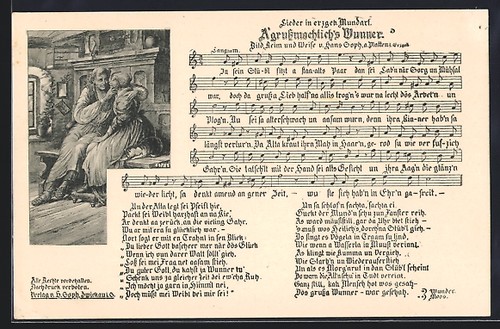 Lieder in erzgeb. Mundart.
A grußmachtich's Wunner.
Bild, Reim und Weise v. Hans Soph, a. Platten i. Erzgeb.
Langsam.
In sein Stü-bl sitzt a staa-alts Paar dan sei Lab'n nár Sorg un Mühsal
war, doch da gruß'a Lieb half'na allis trog'n's wur na lecht dos Arbet'n un
Plog'n. Nu sei sa alterschwach un aasam wurn, denn ihra Kin-ner hab'n sa
längst verlur'n. Da Alta kraut ihra Mah in Haar'n, ge- rod su wie ver fuf-zich
Gahr'n. Sie tatschlt mit der Hand sei alts Gesicht un ihra Aag'n die glänz'n
wie-der licht, sa denkt amend an gener Zeit, — wu sie sich hab'n in Ehr'n ga-freit. —
Un der Alta legt sei Pfeifl hie,
Packt sei Weibl harzhaft an na Knie,
Ar denkt zerück an die Gahr,
Wu ar mit'era su glücklich war. —
Dort sogt er mit en Trahnl in sen Blick:
Du lieber Gott bascheer mer när dos Glück
Wenn ich vun darer Walt söll gieh,
Loß sei mei Fraa net aasam stieh.
Du guter Gott, du kahst ja Wunner tu'
Schenk uns ze gleicher Zeit der ew'che Ruh.
Ich möcht ja gara in Himml nei,
Doch müßt mei Weibl bei mir sei!
Un sa schlof'n sachta, sachta ei.
Guckt der Mund'n schu zun Fanster rei,
As ward mäusstill, gar da Uhr blei stieh —
's muß wos Heilich's dorchna Stübl gieh. —
Do singt es Vögela in Traam su find,
Wie wenn a Wasserla in Muuß verinnt.
As klingt wie Kumma un Vergieh,
Wie Starb'n un Wiederauferstieh.
Un als es Morgnrut in dan Stübl scheint
Do warn die Alt'n schu in Tud vereint.
Ganz still, kah Mensch hot wos gesah —
Dos gruße Wunner — war geschah.
Wunder.
Moos.
Alle Rechte vorbehalten.
Nachdruck verboten.
Verlag v. H. Soph, Zwickau i. S.